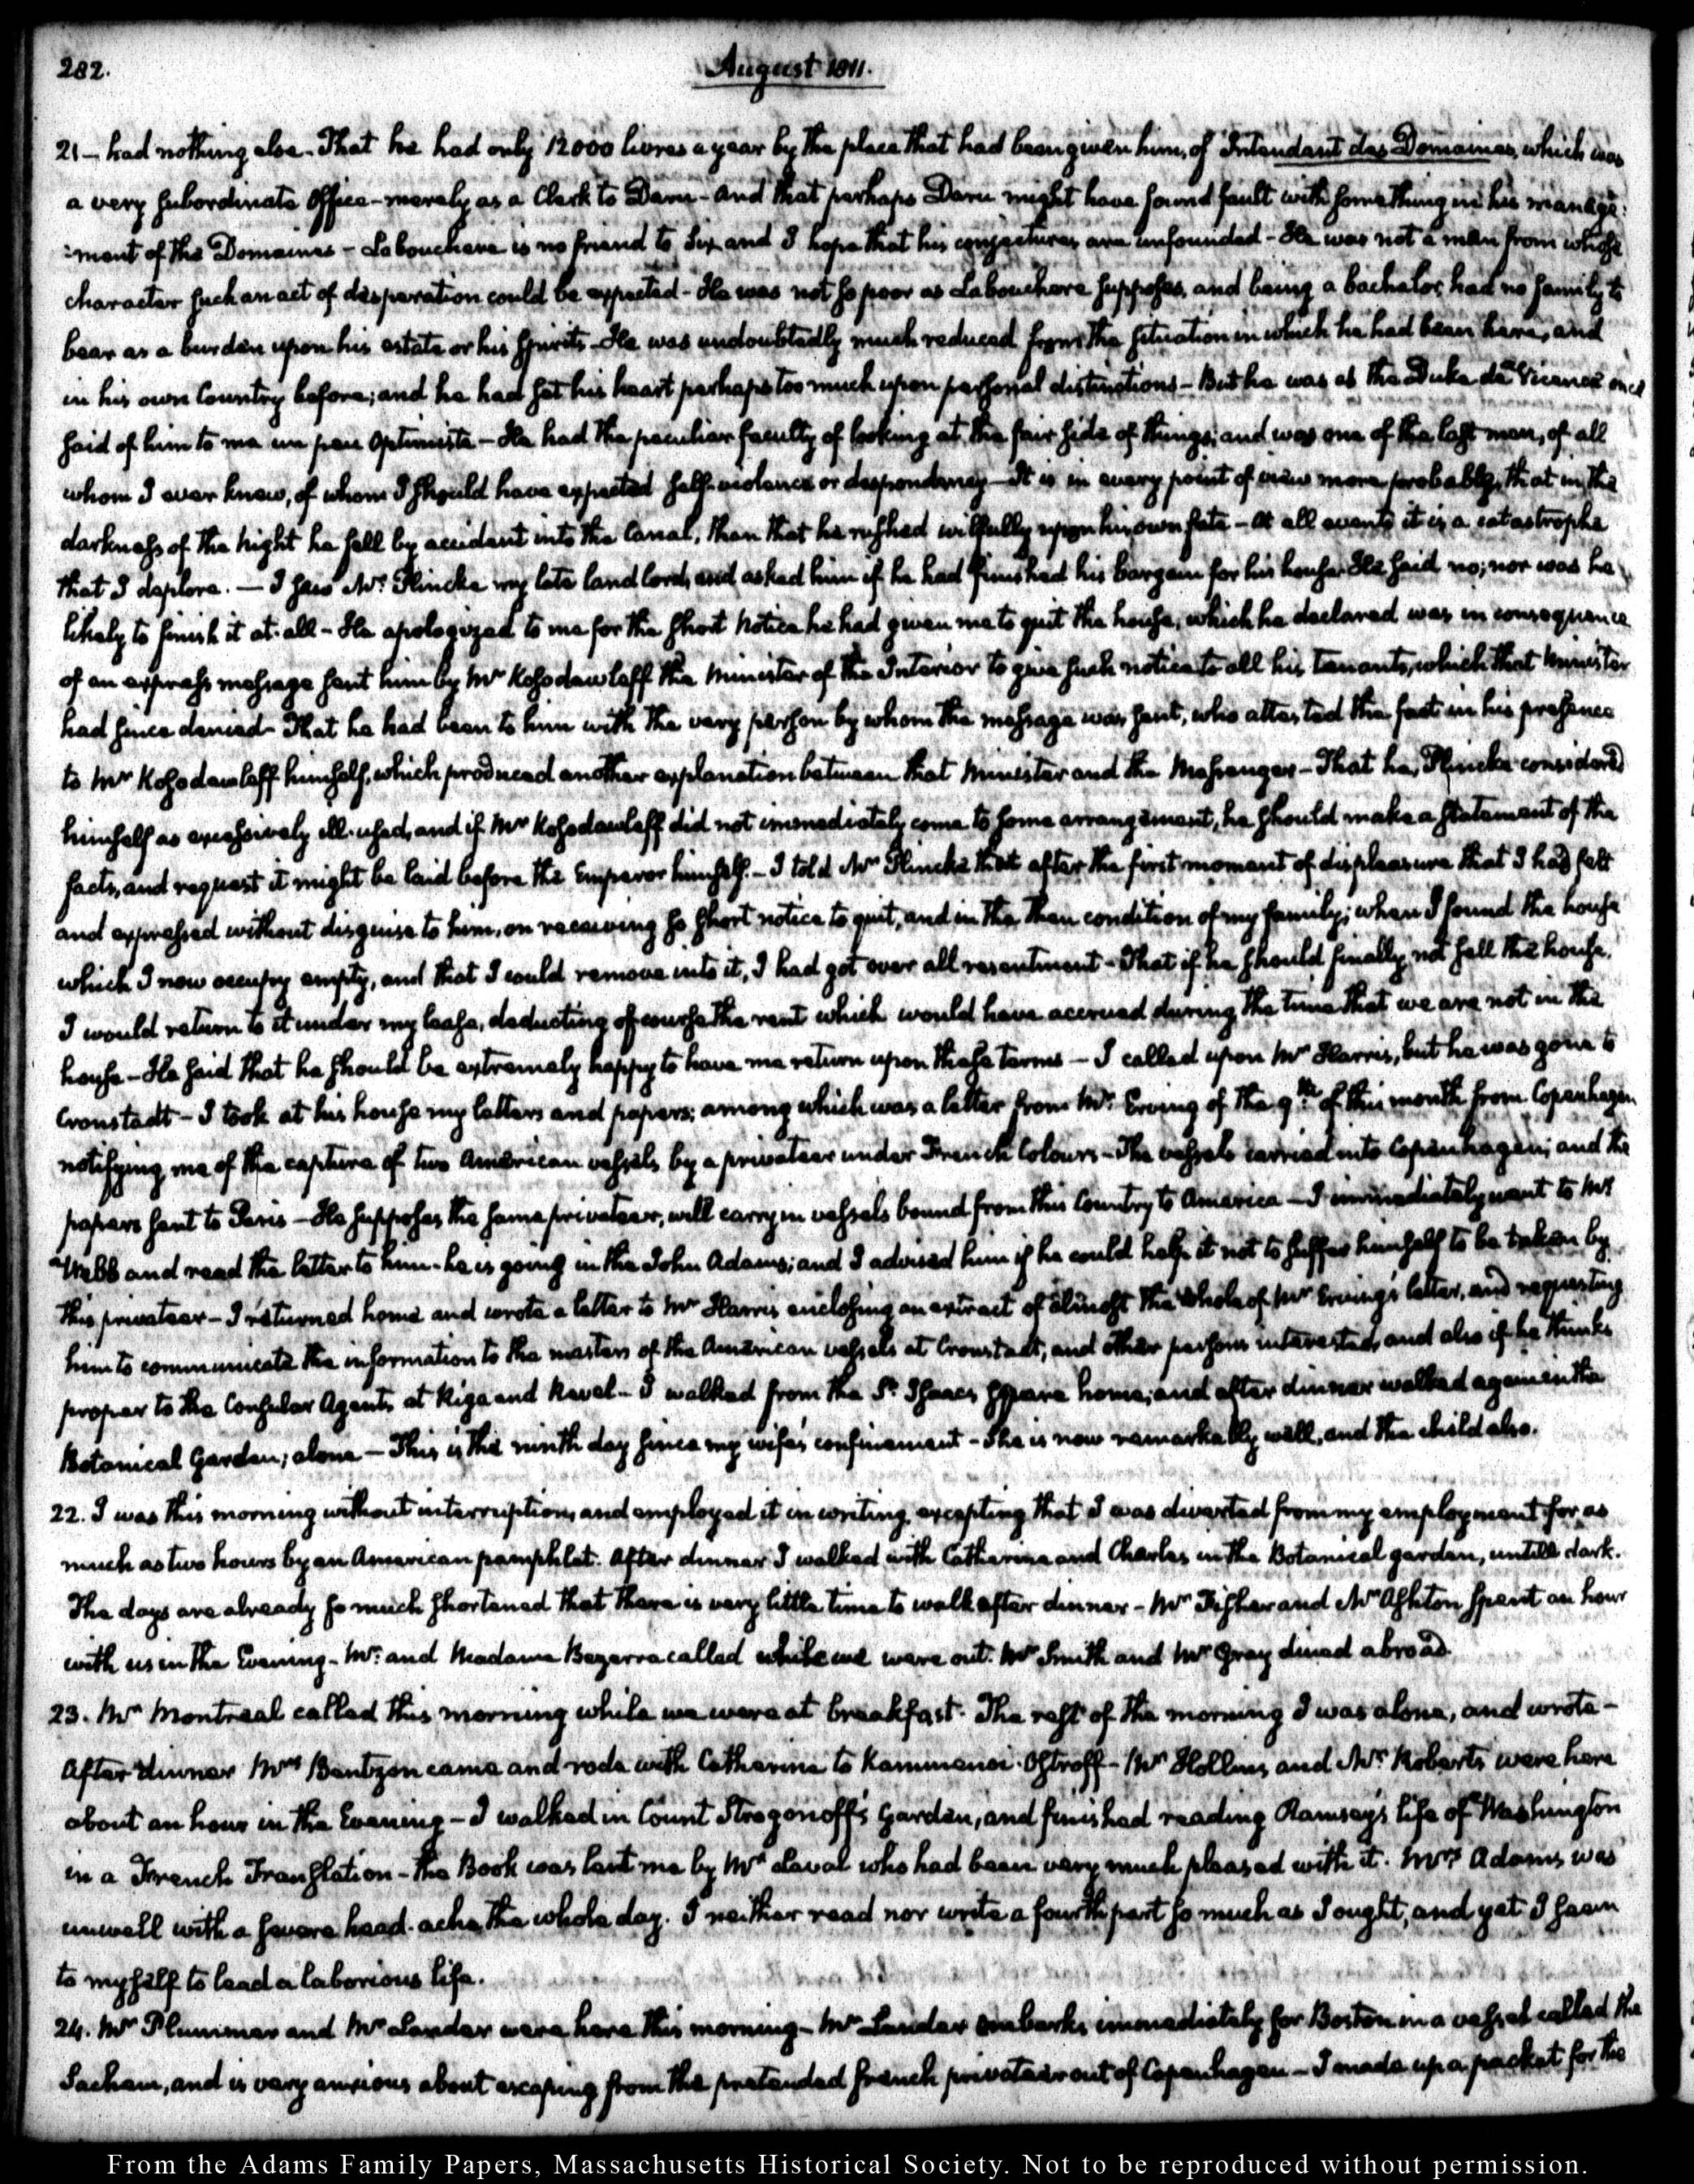 282.
August 1811.
21— had nothing else. That he had only 12000 livres a year by the place that had been given him, of Intendant des Domaines, which was
a very subordinate Office—merely as a Clerk to Daru—and that perhaps Daru might have found fault with something in his manage:
:ment of the Domaines—Labouchere is no friend to Six, and I hope that his conjectures are unfounded—He was not a man from whose
character such an act of desperation could be expected—He was not so poor as Labouchere supposes, and being a bachelor, had no family to
bear as a burden upon his estate or his spirits—He was undoubtedly much reduced from the situation in which he had been here, and
in his own Country before; and he had set his heart perhaps too much upon personal distinctions—But he was as the Duke de Vicence once
said of him to me un peu Optimiste—He had the peculiar faculty of looking at the fair side of things; and was one of the last men, of all
whom I ever knew, of whom I should have expected self-violence or despondency—It is in every point of view more probable, that in the
darkness of the night he fell by accident into the Canal, than that he rushed wilfully upon his own fate—At all events it is a catastrophe
that I deplore.—I saw Mr. Plincke my late landlord, and asked him if he had finished his bargain for his house. He said no; nor was he
likely to finish it at all—He apologized to me for the short notice he had given me to quit the house, which he declared was in consequence
of an express message sent him by Mr Kosodawleff the Minister of the Interior to give such notice to all his tenants, which that Minister
had since denied—That he had been to him with the very person by whom the message was sent, who attested the fact in his presence
to Mr Kosodawleff himself, which produced another explanation between that Minister and the Messenger—That he, Plincke considered
himself as excessively ill-used, and if Mr Kosodawleff did not immediately come to some arrangement, he should make a statement of the
facts, and request it might be laid before the Emperor himself.—I told Mr Plincke that after the first moment of displeasure that I had felt
and expressed without disguise to him, on receiving so short notice to quit, and in the then condition of my family; when I found the house
which I now occupy empty, and that I could remove into it, I had got over all resentment—That if he should finally not sell the house,
I would return to it under my lease, deducting of course the rent which would have accrued during the time that we are not in the
house—He said that he should be extremely happy to have me return upon these terms—I called upon Mr Harris, but he was gone to
Cronstadt—I took at his house my letters and papers; among which was a letter from Mr. Erving of the 9th of this month from Copenhagen
notifying me of the capture of two American vessels, by a privateer under French Colours—The vessels carried into Copenhagen; and the
papers sent to Paris—He supposes the same privateer, will carry in vessels bound from this Country to America—I immediately went to Mr
Webb and read the letter to him—he is going in the John Adams; and I advised him if he could help it not to suffer himself to be taken by
this privateer—I returned home and wrote a letter to Mr Harris enclosing an extract of almost the whole of Mr Erving's letter, and requesting
him to communicate the information to the masters of the American vessels at Cronstadt, and other persons interested, and also if he thinks
proper to the Consular Agents, at Riga and Revel—I walked from the St. Isaacs Square home; and after dinner walked again in the
Botanical Garden; alone—This is the ninth day since my wife's confinement—She is now remarkably well, and the child also.
22. I was this morning without interruption, and employed it in writing, excepting that I was diverted from my employment for as
much as two hours by an American pamphlet. After dinner I walked with Catherine and Charles in the Botanical garden, untill dark.
The days are already so much shortened that there is very little time to walk after dinner—Mr Fisher and Mr Ashton spent an hour
with us in the Evening—Mr. and Madame Bezerra called while we were out. Mr Smith and Mr Gray dined abroad.
23. Mr Montreal called this morning while we were at breakfast. The rest of the morning I was alone, and wrote—
After dinner Mrs Bentzon came and rode with Catherine to Kammenoi-Ostroff—Mr Hollins, and Mr. Roberts were here
about an hour in the Evening—I walked in Count Strogonoff's Garden, and finished reading Ramsay's life of Washington
in a French Translation—The Book was lent me by Mr Laval who had been very much pleased with it. Mrs Adams was
unwell with a severe head-ache the whole day. I neither read nor write a fourth part so much as I ought, and yet I seem
to myself to lead a laborious life.
24. Mr Plummer and Mr Lander were here this morning—Mr Lander embarks immediately for Boston in a vessel called the
Sachem, and is very anxious about escaping from the pretended french privateer out of Copenhagen—I made up a packet for the
From the Adams Family Papers, Massachusetts Historical Society. Not to be reproduced without permission.